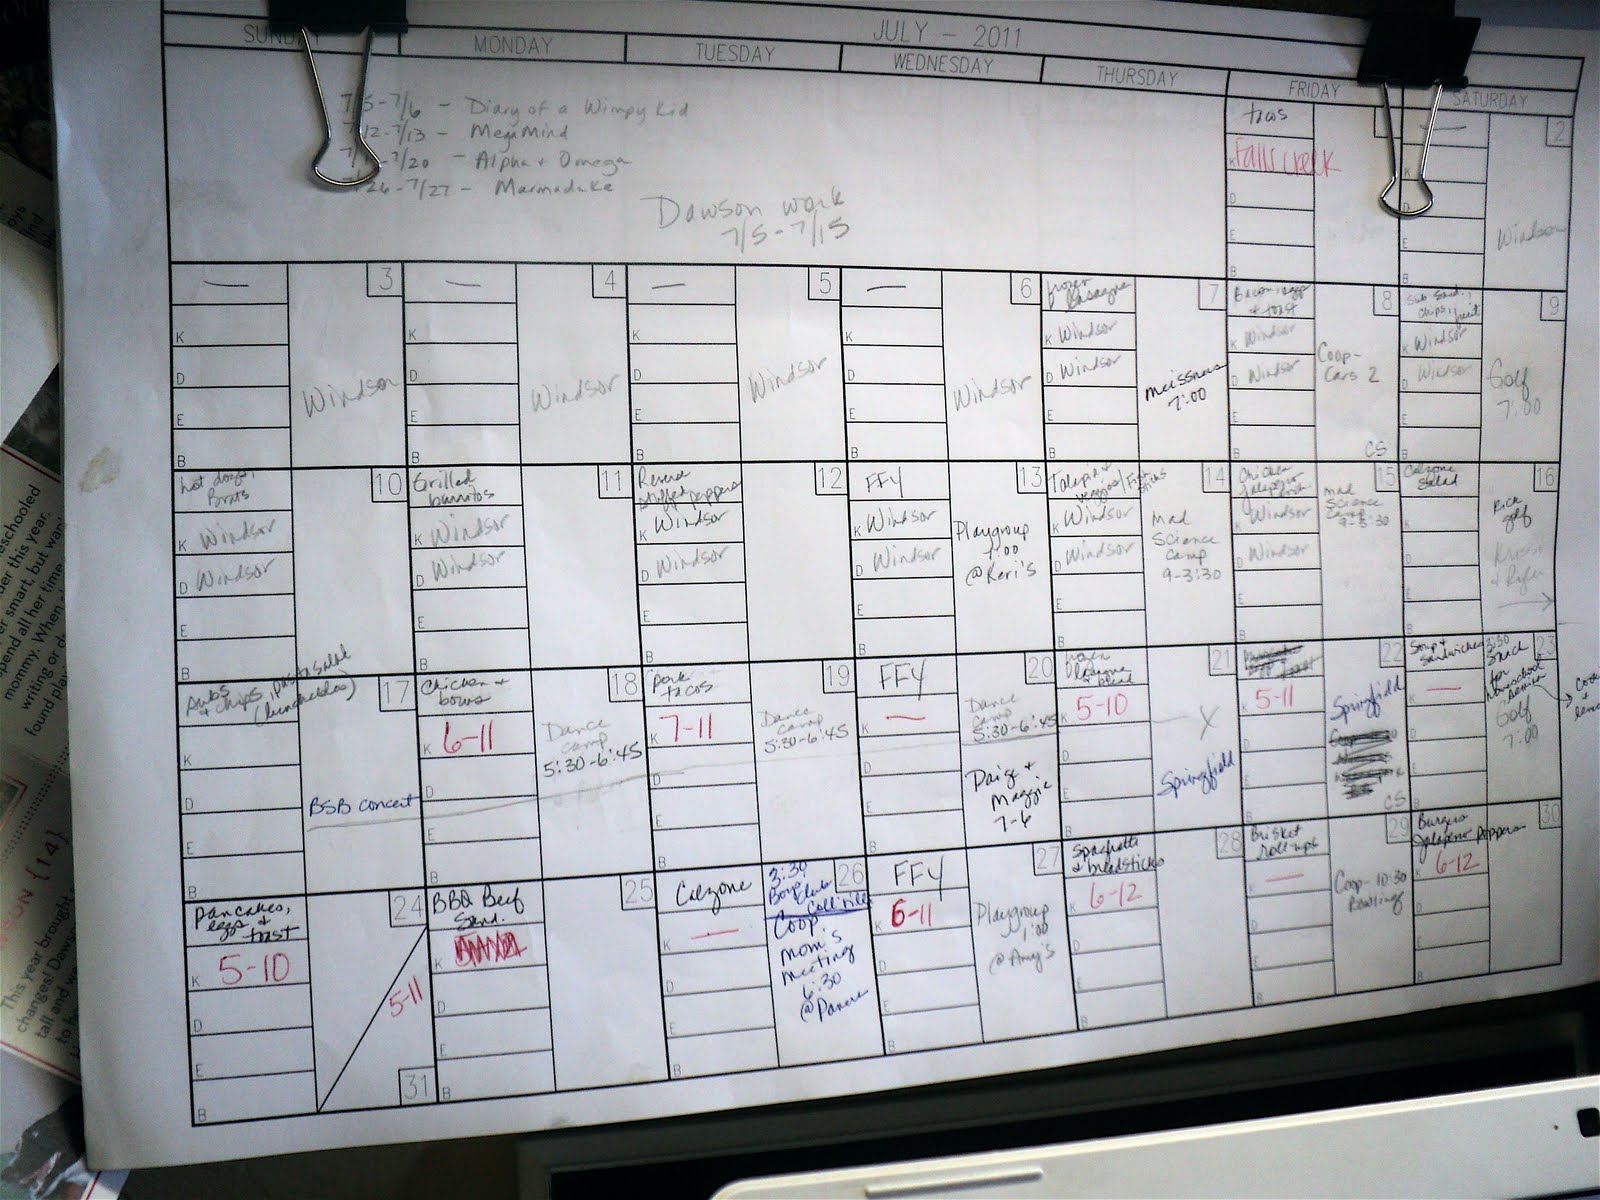 JULY - 2011
SUNDAY MONDAY TUESDAY WEDNESDAY THURSDAY FRIDAY SATURDAY
7/5-7/6 - Diary of a Wimpy Kid
7/12-7/13 - MegaMind
7/20 - Alpha + Omega
7/26-7/27 - Marmaduke
Dawson work
7/5-7/15
Falls creek
K
D
E
B
2
K
E
B
Windsor
3
K
D
E
B
Windsor
4
K
D
E
B
Windsor
5
K
D
E
B
Windsor
6
K
D
E
B
Windsor
7
K Windsor
D Windsor
E
B
7:00
8
Bacon, egg
+ toast
K Windsor
D Windsor
E
B
Coop-
Cars 2
CS
9
Sub Sand.,
chips, fruit
K Windsor
D Windsor
E
B
Golf
7:00
10
hot dogs,
Brats
K Windsor
D Windsor
E
B
11
Grilled
burritos
K Windsor
D Windsor
E
B
12
stuffed peppers
K Windsor
D Windsor
E
B
13
FFY
K Windsor
D Windsor
E
B
Playgroup
1:00
@Keri's
14
K Windsor
D Windsor
E
B
Mad
Science
Camp
9-3:30
15
Chicken
K Windsor
D Windsor
E
B
Mad
Science
Camp
9-3:30
16
Calzone
Salad
K
D
E
B
Rick
golf
17
+ chips, pasta salad
(lunchables)
K
D
E
B
BSB concert
18
Chicken +
bows
K 6-11
D
E
B
Dance
camp
5:30-6:45
19
Pork
tacos
K 7-11
D
E
B
Dance
camp
5:30-6:45
20
FFY
K
D
E
B
Dance
camp
5:30-6:45
Paige +
Maggie
7-6
21
K 5-10
D
E
B
X
Springfield
22
K 5-11
D
E
B
Springfield
CS
23
Soup +
Sandwiches
K
D
E
B
3:30
Snack
for
homeschool
Golf
7:00
24
pancakes,
eggs +
toast
K 5-10
D
E
B
5-11
31
25
BBQ Beef
Sand.
K
D
E
B
26
Calzone
K
D
E
B
3:30
Coop
Mom's
Meeting
6:30
@Panera
27
FFY
K 6-11
D
E
B
Playgroup
1:00
@Amy's
28
Spaghetti
+ breadsticks
K 6-12
D
E
B
29
Brisket
roll-ups
K
D
E
B
Coop-10:30
Bowling
30
Burgers
Jalapeno Poppers
K 6-12
D
E
B